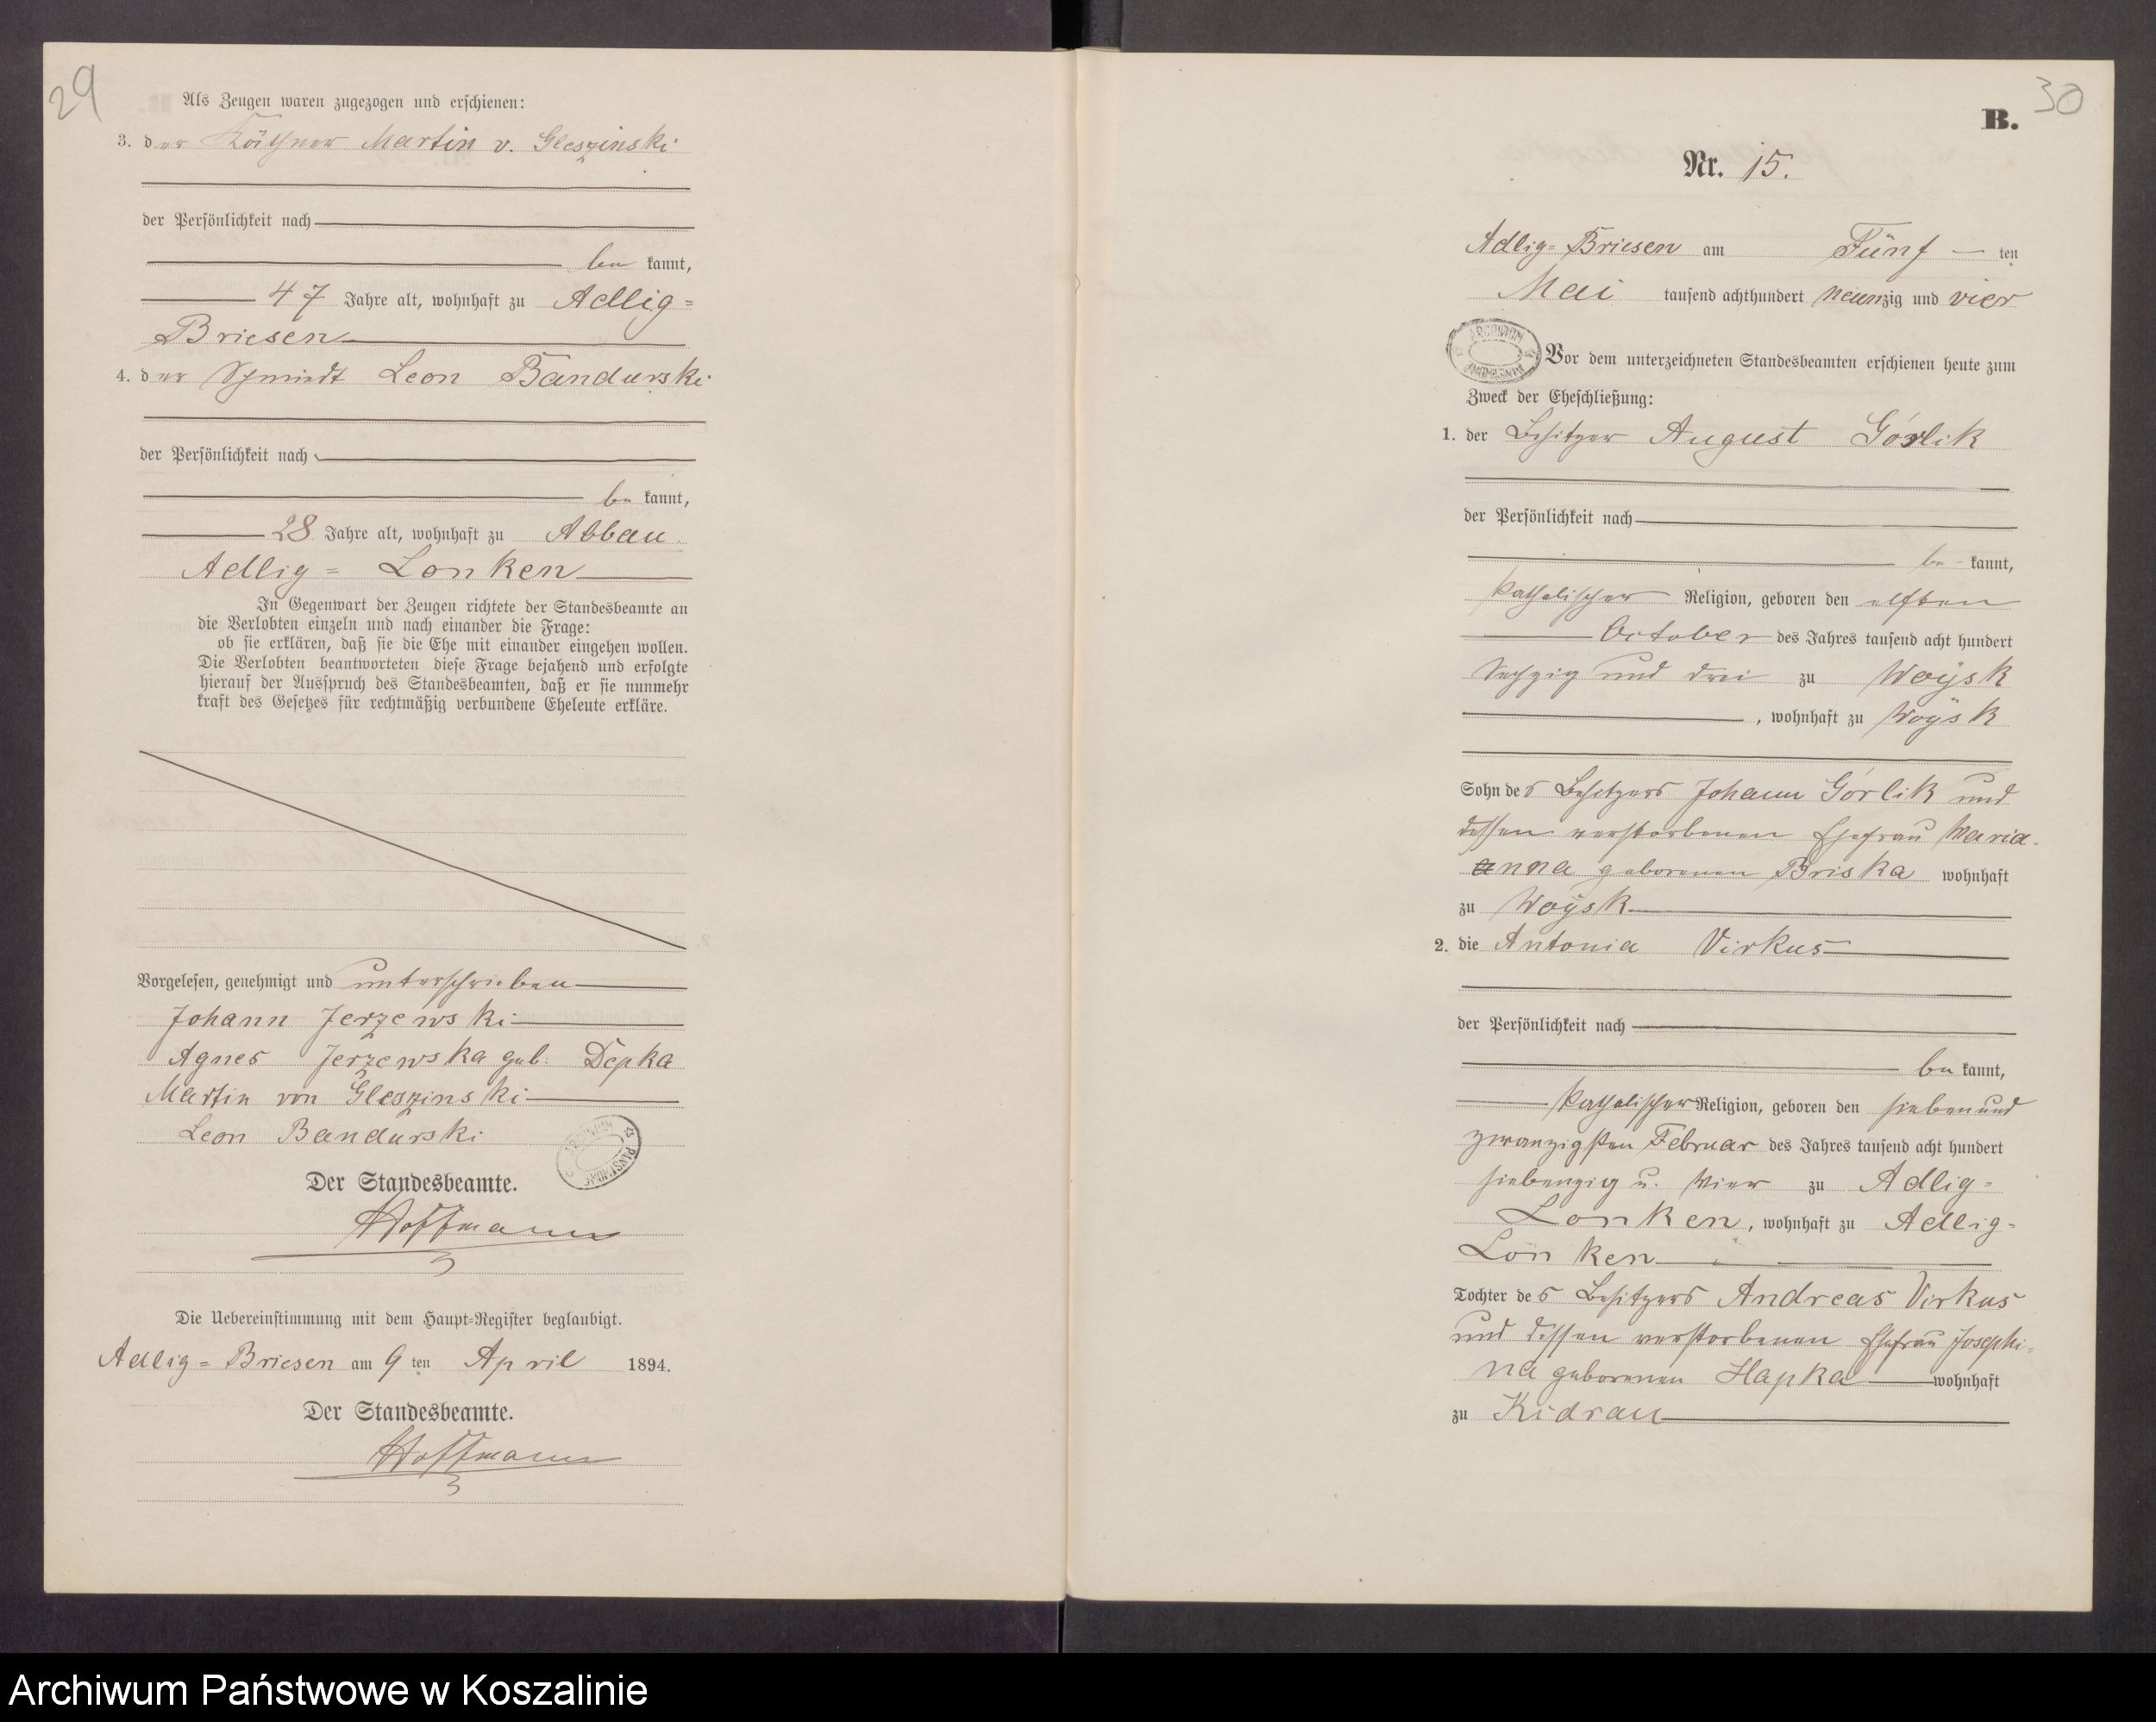 29
Als Zeugen waren zugezogen und erschienen:
3. der Käthner Martin v. Gleszinski
der Persönlichkeit nach
be kannt,
47 Jahre alt, wohnhaft zu Adlig=
Briesen
4. der Schmiedt Leon Bandurski
der Persönlichkeit nach
be kannt,
28 Jahre alt, wohnhaft zu Abbau
Adlig= Lonken
In Gegenwart der Zeugen richtete der Standesbeamte an
die Verlobten einzeln und nach einander die Frage:
ob sie erklären, daß sie die Ehe mit einander eingehen wollen.
Die Verlobten beantworteten diese Frage bejahend und erfolgte
hierauf der Ausspruch des Standesbeamten, daß er sie nunmehr
kraft des Gesetzes für rechtmäßig verbundene Eheleute erkläre.
Vorgelesen, genehmigt und unterschrieben
Johann Jerzewski
Agnes Jerzewska geb. Depka
Martin von Gleszinski
Leon Bandurski
Der Standesbeamte.
Hoffmann
Die Uebereinstimmung mit dem Haupt=Register beglaubigt.
Adlig=Briesen am 9 ten April 1894.
Der Standesbeamte.
Hoffmann
30
B.
Nr. 15.
Adlig=Briesen am Fünf ten
Mai tausend achthundert neunzig und vier
ARCHIWUM PAŃSTWOWE
Vor dem unterzeichneten Standesbeamten erschienen heute zum
Zweck der Eheschließung:
1. der Besitzer August Górlik
der Persönlichkeit nach
be kannt,
katholischer Religion, geboren den elften
October des Jahres tausend acht hundert
sechzig und drei zu Woysk
, wohnhaft zu Woysk
Sohn des Besitzers Johann Górlik und
dessen verstorbenen Ehefrau Maria
anna geborenen Briska wohnhaft
zu Woysk
2. die Antonia Virkus
der Persönlichkeit nach
be kannt,
katholischer Religion, geboren den siebenund
zwanzigsten Februar des Jahres tausend acht hundert
siebenzig u. vier zu Adlig=
Lonken, wohnhaft zu Adlig=
Lonken
Tochter des Besitzers Andreas Virkus
und dessen verstorbenen Ehefrau Josephi=
na geborenen Hapka wohnhaft
zu Kidrau
Archiwum Państwowe w Koszalinie